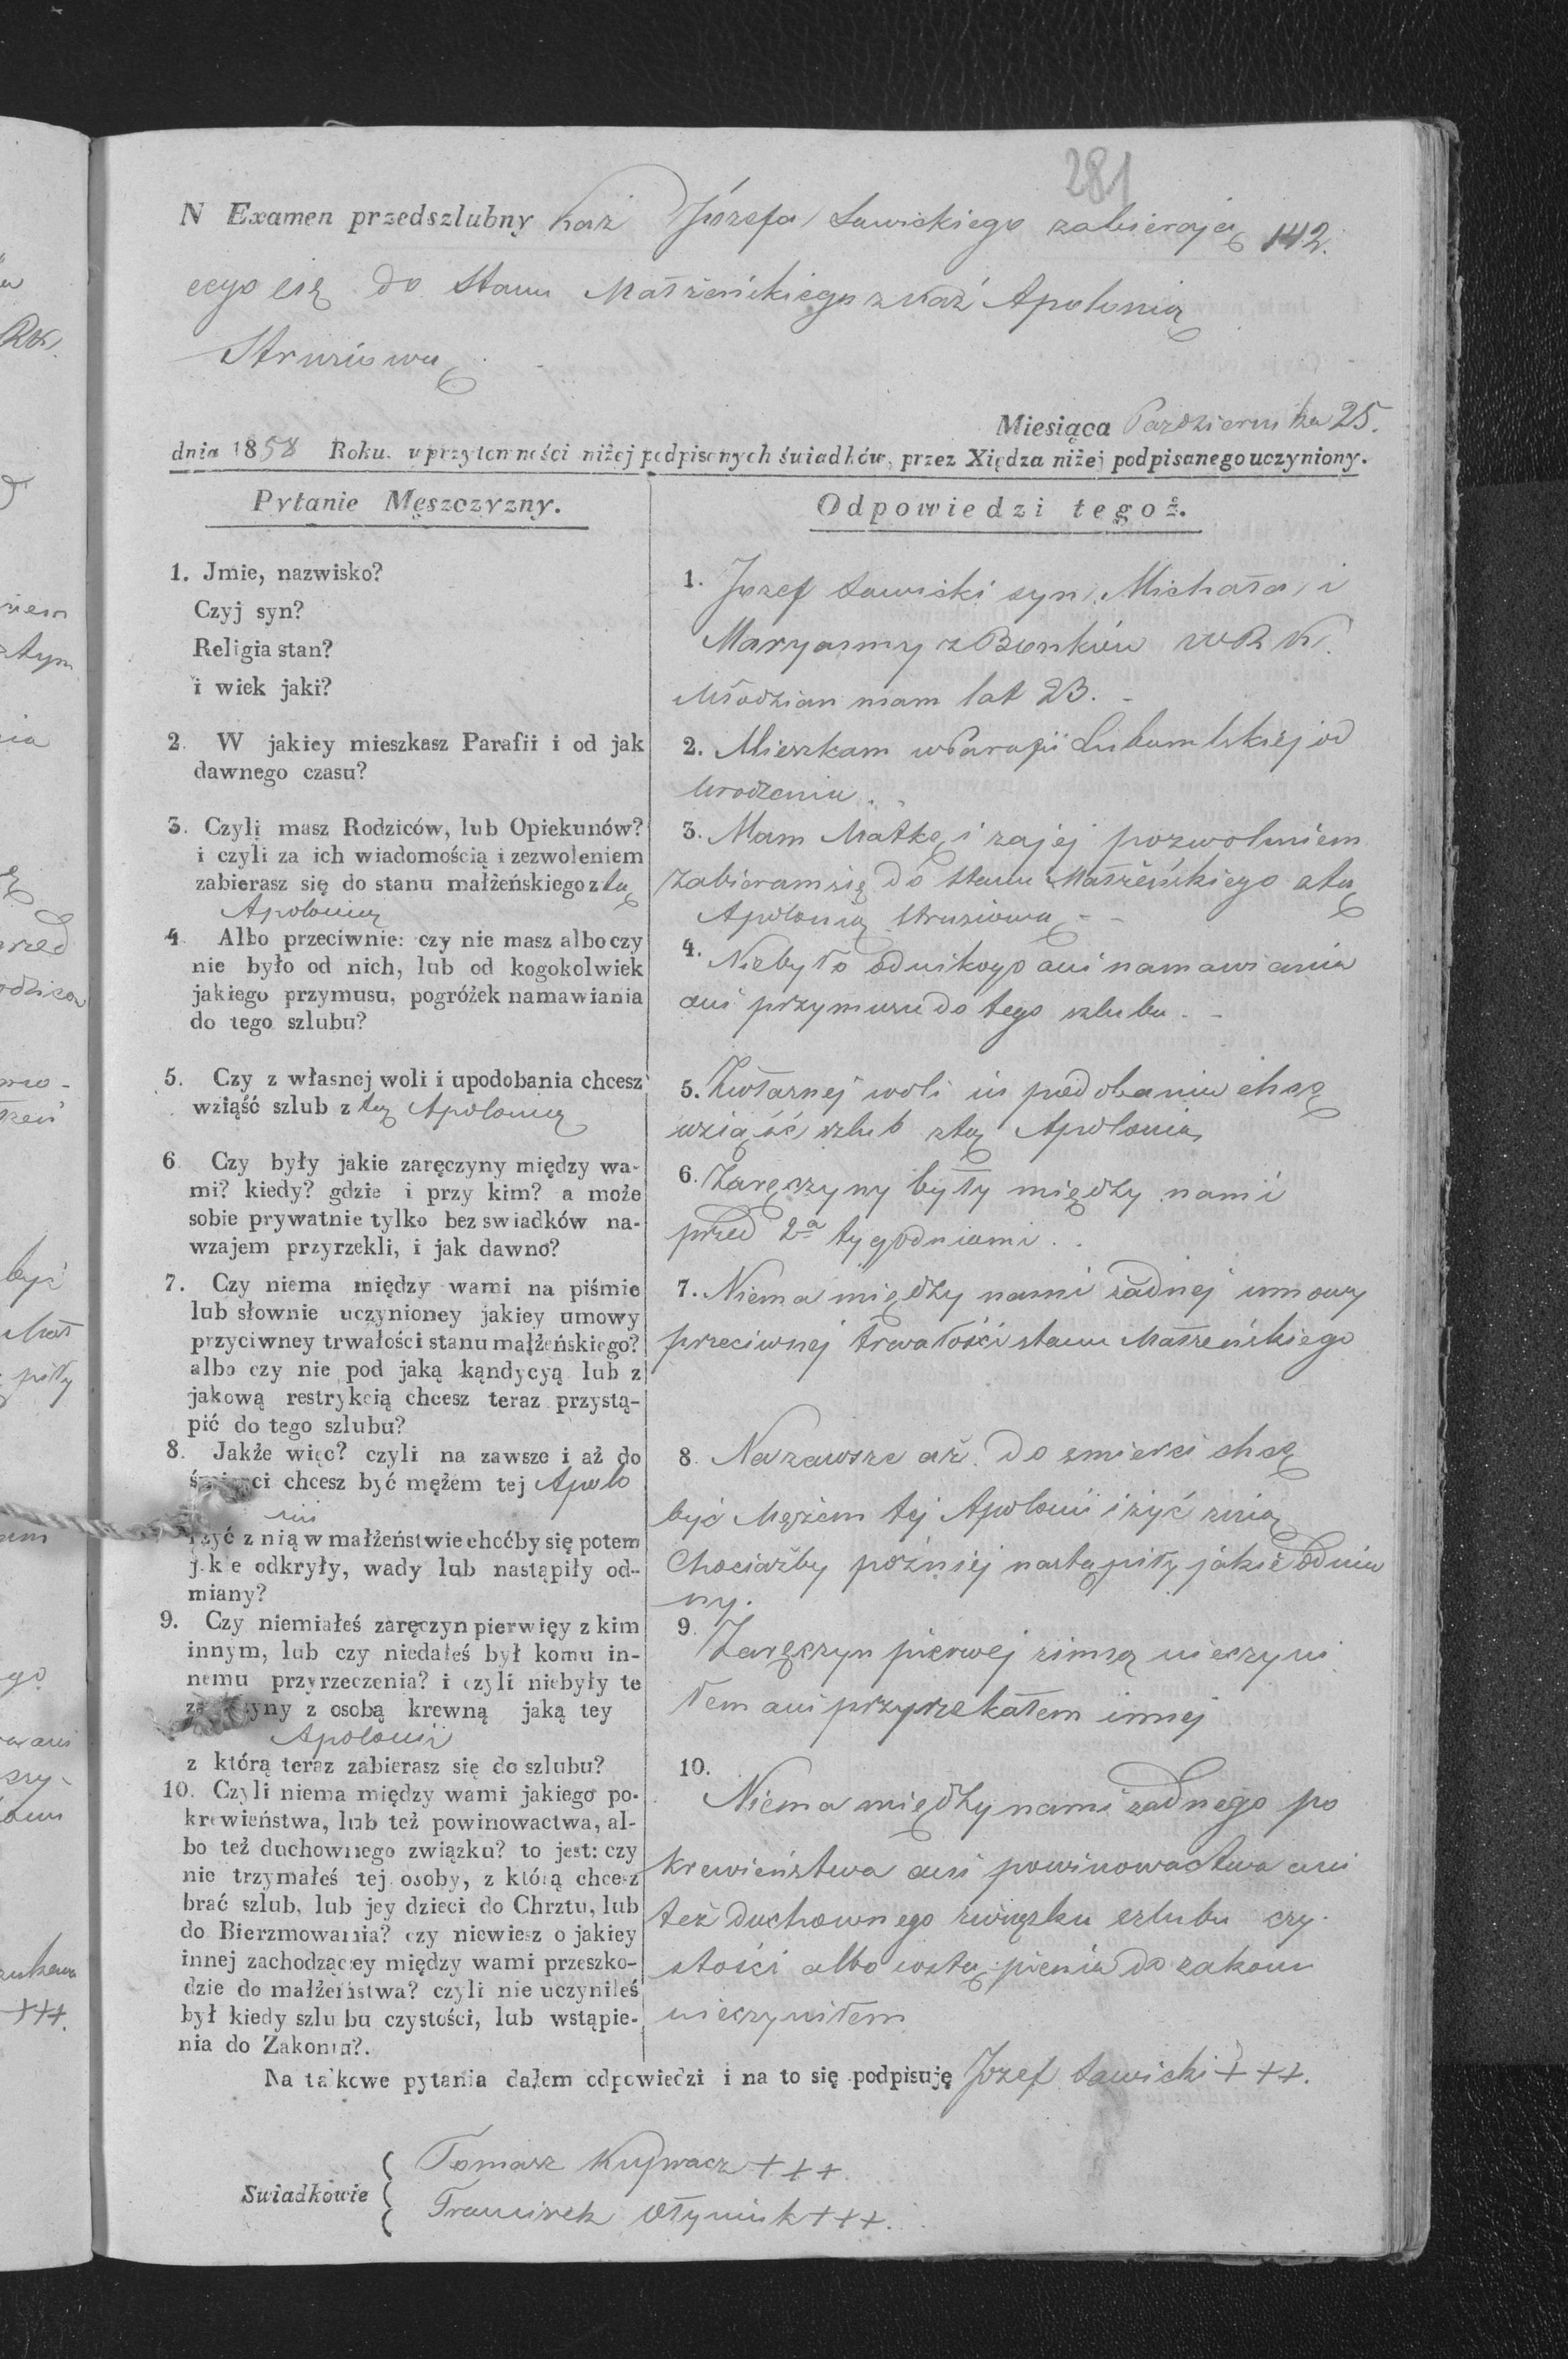 281
N Examen przedszlubny Kaź Józefa Ławickiego zabierają 142.
cego się do stanu Małżeńskiego z Kaź Apolonią
Struziową
Miesiąca Pazdziernika 25.
dnia 1858 Roku. w przytomności niżej podpisanych świadków, przez Xiędza niżej podpisanego uczyniony.
Pytanie Męszczyzny.
1. Jmie, nazwisko?
Czyj syn?
Religia stan?
i wiek jaki?
2. W jakiey mieszkasz Parafii i od jak
dawnego czasu?
3. Czyli masz Rodziców, lub Opiekunów?
i czyli za ich wiadomością i zezwoleniem
zabierasz się do stanu małżeńskiego z tą
Apolonią
4. Albo przeciwnie: czy nie masz albo czy
nie było od nich, lub od kogokolwiek
jakiego przymusu, pogróżek namawiania
do tego szlubu?
5. Czy z własnej woli i upodobania chcesz
wziąść szlub z tą Apolonią
6 Czy były jakie zaręczyny między wa-
mi? kiedy? gdzie i przy kim? a może
sobie prywatnie tylko bez swiadków na-
wzajem przyrzekli, i jak dawno?
7. Czy niema między wami na piśmie
lub słownie uczynioney jakiey umowy
przyciwney trwałości stanu małżeńskiego?
albo czy nie pod jaką kąndycyą lub z
jakową restrykcią chcesz teraz przystą-
pić do tego szlubu?
8. Jakże więc? czyli na zawsze i aż do
śmierci chcesz być mężem tej Apolo
nii
i żyć z nią w małżeństwie choćby się potem
jakie odkryły, wady lub nastąpiły od-
miany?
9. Czy niemiałeś zaręczyn pierwięy z kim
innym, lub czy niedałeś był komu in-
nemu przyrzeczenia? i czyli niebyły te
zaręczyny z osobą krewną jaką tey
Apolonii
z którą teraz zabierasz się do szlubu?
10. Czyli niema między wami jakiego po-
krewieństwa, lub też powinowactwa, al-
bo też duchownego związku? to jest: czy
nie trzymałeś tej osoby, z którą chcesz
brać szlub, lub jey dzieci do Chrztu, lub
do Bierzmowania? czy niewiesz o jakiey
innej zachodzącey między wami przeszko-
dzie do małżeństwa? czyli nie uczyniłeś
był kiedy szlubu czystości, lub wstąpie-
nia do Zakonu?.
Odpowiedzi tegoż.
1. Jozef Ławicki syn Michała i
Maryanny z Bonków WRK.
Młodzian mam lat 23.
2. Mieszkam w Parafii Lubomlskiej od
urodzenia.
3. Mam Matkę i za jej pozwoleniem
zabieram się do stanu Małżeńskiego z tą
Apolonią Struziową
4. Niebyło od nikogo ani namawiania
ani przymusu do tego szlubu.
5. Zwłasnej woli i upodobania chcę
wziąść szlub z tą Apolonią
6. Zaręczyny były między nami
przed 2a tygodniami.
7. Niema między nami żadnej umowy
przeciwnej trwałości stanu Małżeńskiego
8. Na zawsze aż do smierci chcę
być Mężem tej Apolonii i żyć z nią
Chociażby pózniej nastąpiły jakie odmia
ny.
9. Zaręczyn pierwej z inną nieczyni
łem ani przyrzekałem innej
10.
Niema między nami żadnego po
krewieństwa ani powinowactwa ani
też duchownego związku szlubu czy
stości albo wstąpienia do zakonu
nieczyniłem
Na takowe pytania dałem odpowiedzi i na to się podpisuję Jozef Ławicki +++.
Swiadkowie
Tomasz Kuzwacz +++
Franciszek Ołyniuk +++.